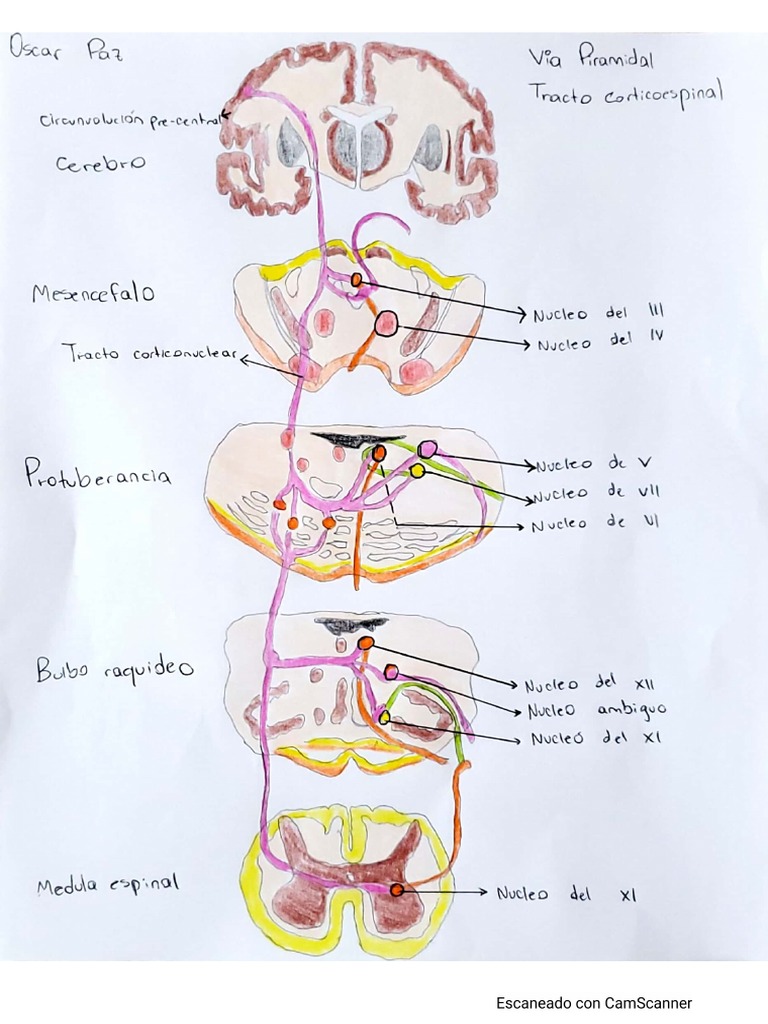 Oscar Paz
Via Piramidal
Tracto corticoespinal
Circunvolución pre-central
Cerebro
Mesencefalo
Nucleo del III
Nucleo del IV
Tracto corticonuclear
Protuberancia
Nucleo de V
Nucleo de VII
Nucleo de VI
Bulbo raquideo
Nucleo del XII
Nucleo ambiguo
Nucleo del XI
Medula espinal
Nucleo del XI
Escaneado con CamScanner